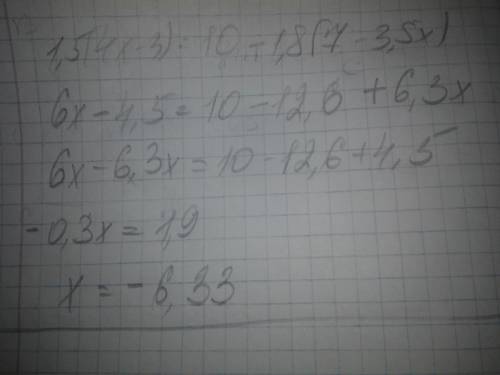 1,5(4x-3) = 10 - 1,8(7 - 3,5x)
6x - 4,5 = 10 - 12,6 + 6,3x
6x - 6,3x = 10 - 12,6 + 4,5
-0,3x = 1,9
x = -6,33